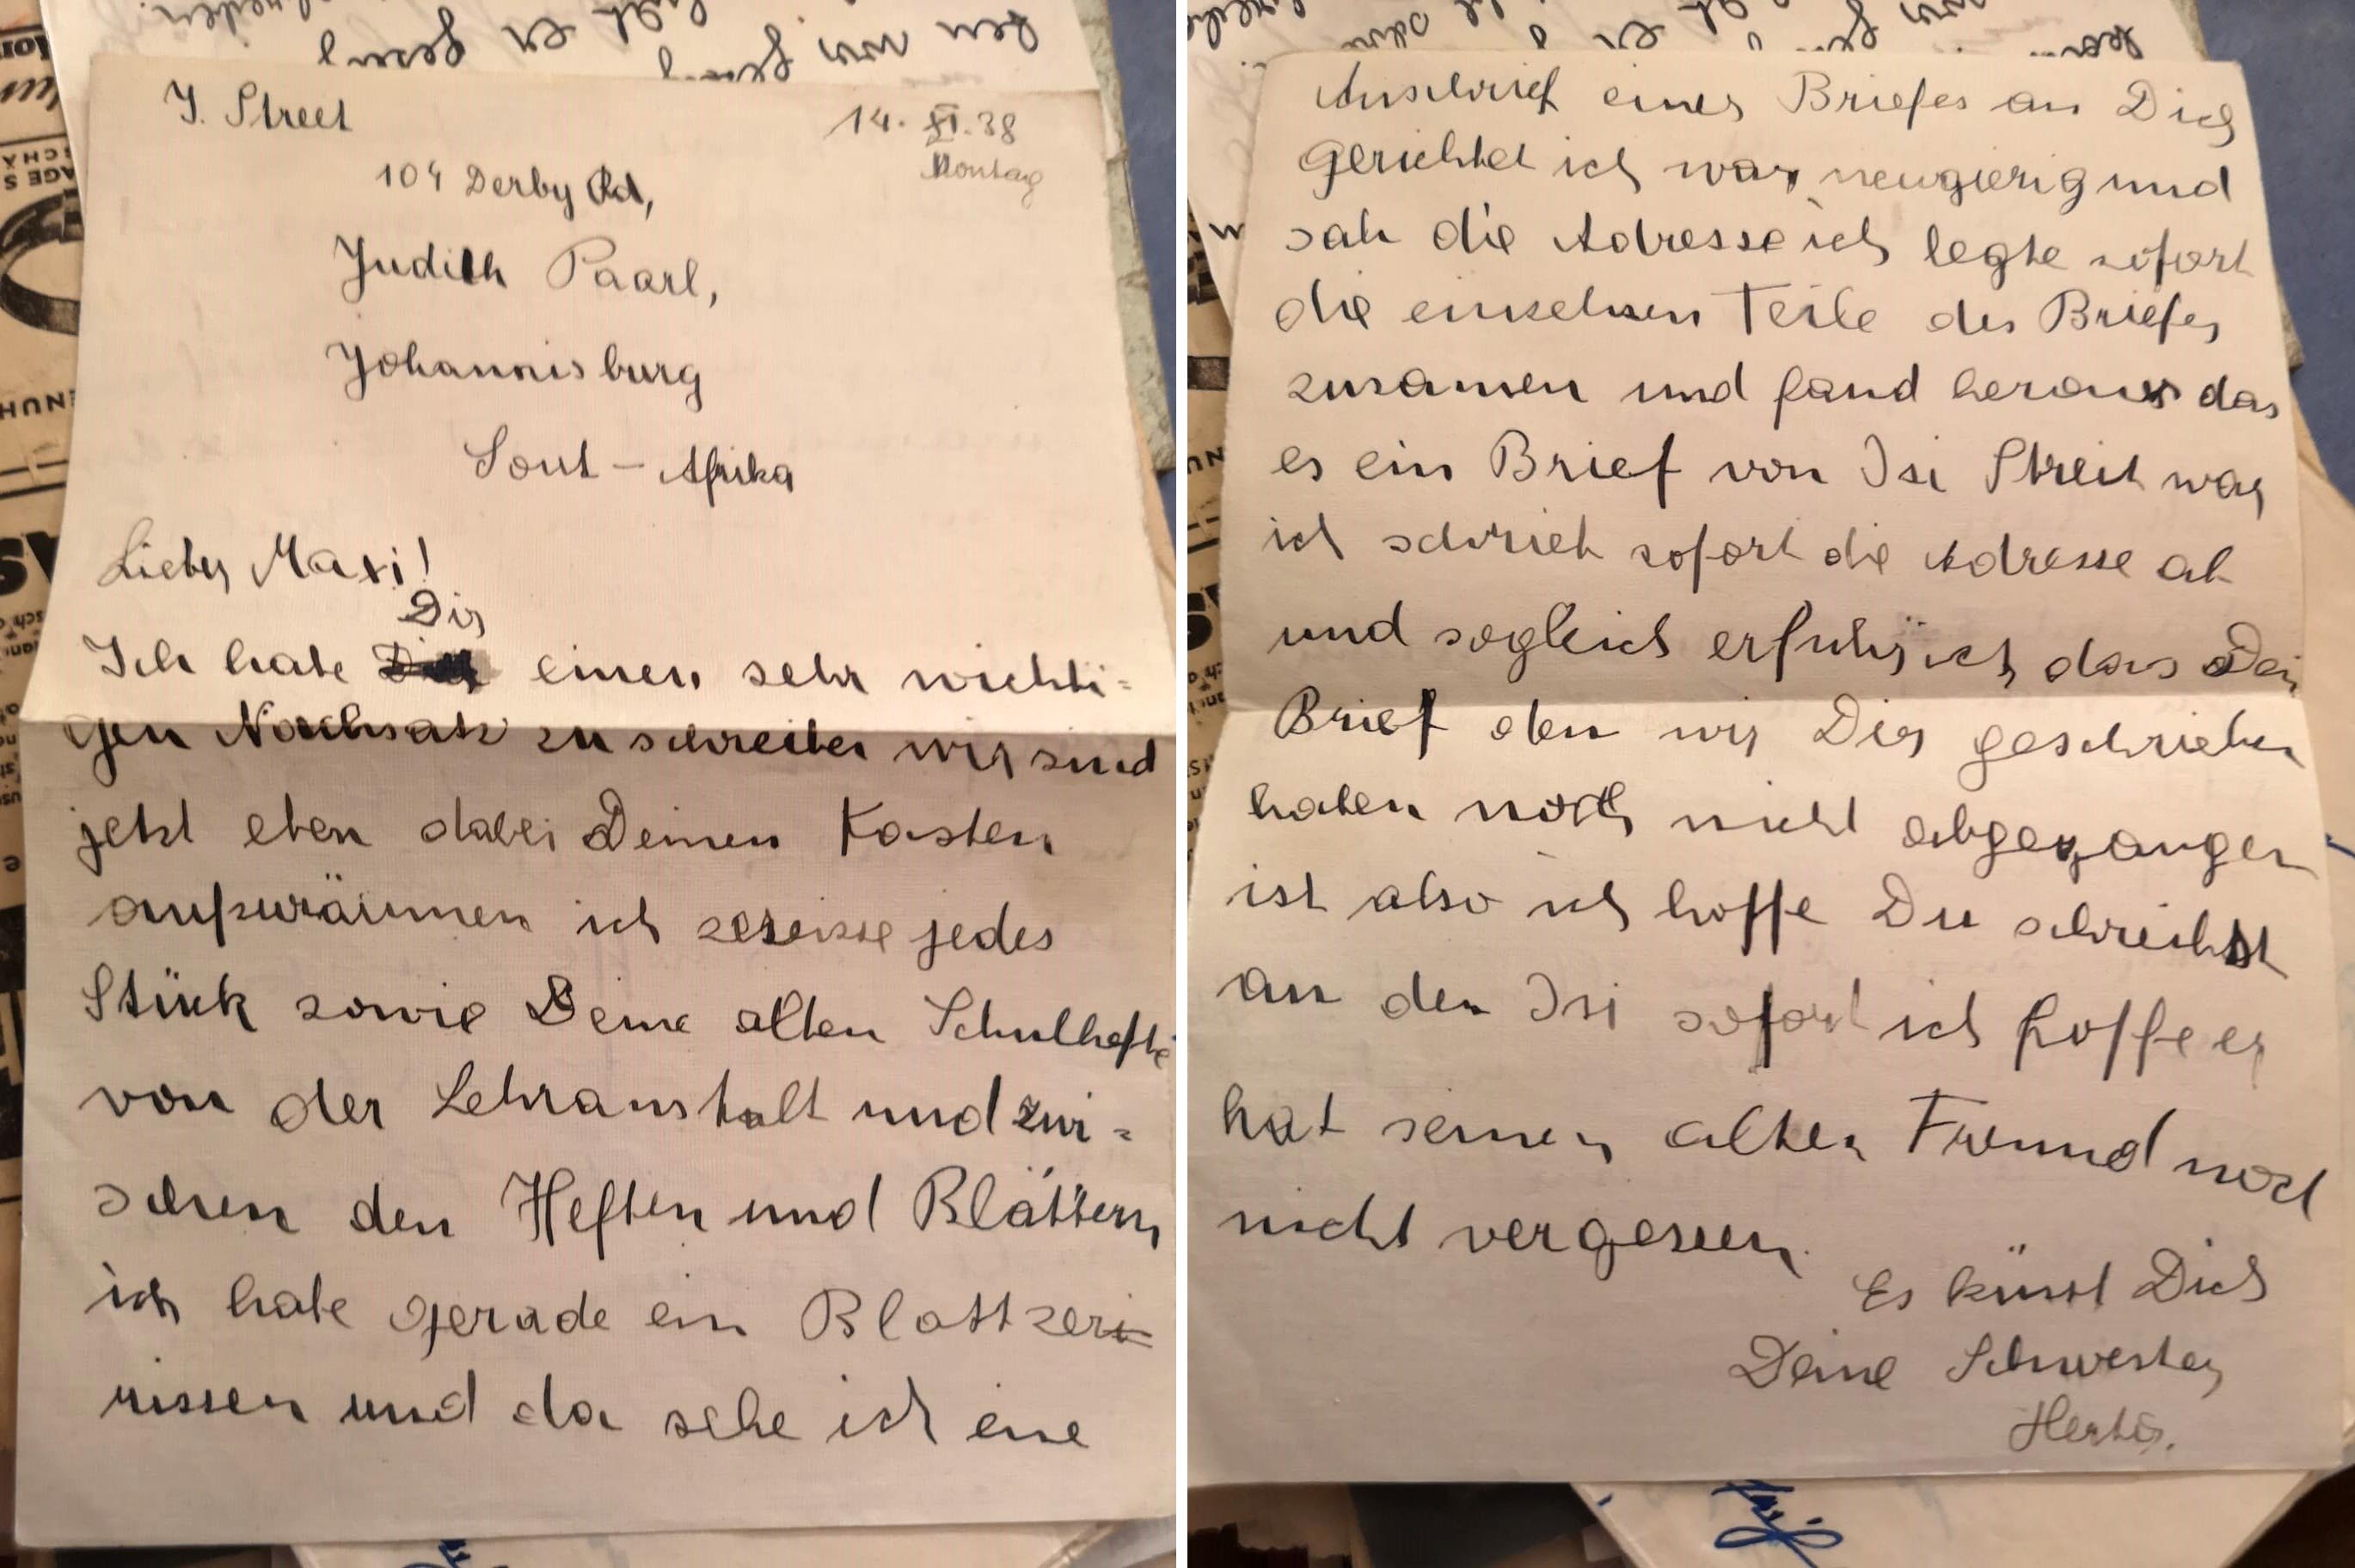 J. Street
14. XI. 38
Montag
104 Derby Rd,
Judith Paarl,
Johannisburg
Sout - Afrika
Lieber Maxi!
Dir
Ich habe einen sehr wichti=
gen Nachsatz zu schreiben wir sind
jetzt eben dabei Deinen Kasten
aufzuräumen ich zereisse jedes
Stük sowie Deine alten Schulhefte
von der Lehranstalt und zwi=
schen den Heften und Blättern
ich habe gerade ein Blatt zer
rissen und da sehe ich eine
Anschrief eines Briefes an Dich
gerichtet ich war neugierig und
sah die Adresse ich legte sofort
die einzelnen Teile des Briefes
zusamen und fand heraus das
es ein Brief von Isi Streit war
ich schrieb sofort die Adresse ab
und sogleich erfuhr ich das Dein
Brief den wir Dir geschrieben
haben noch nicht abgegangen
ist also ich hoffe Du schreibst
an den Isi sofort ich hoffe er
hat seinen alten Freund noch
nicht vergessen.
Es küsst Dich
Deine Schwester
Herta.